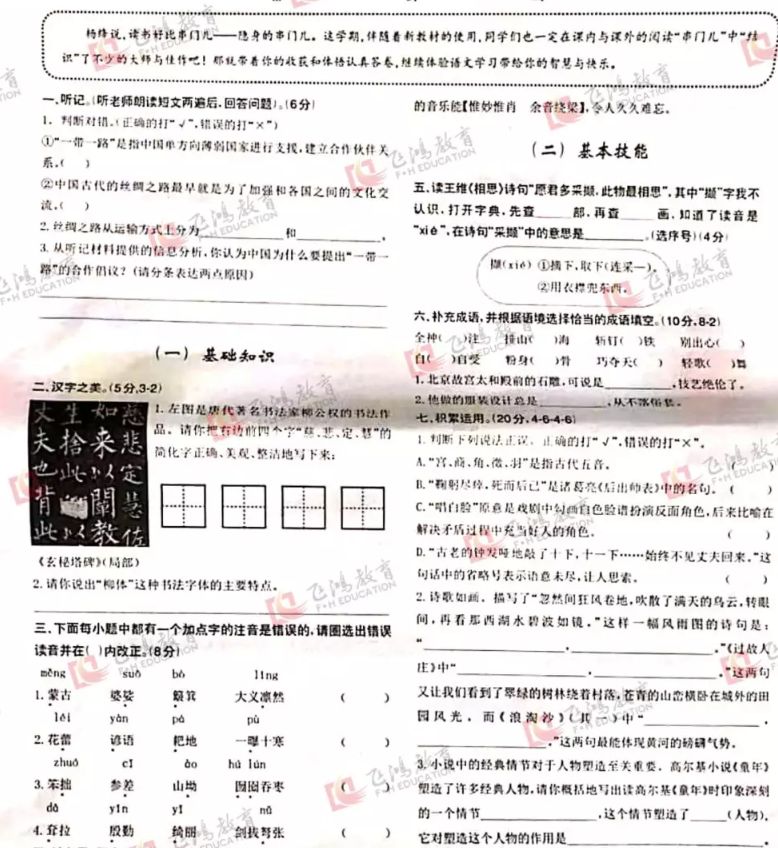 杨绛说,读书好比串门儿——隐身的串门儿。这学期,伴随着新教材的使用,同学们也一定在课内与课外的阅读“串门儿”中“结
识”了不少的大师与佳作吧!那就带着你的收获和体悟认真答卷,继续体验语文学习带给你的智慧与快乐。
一、听记。(听老师朗读短文两遍后,回答问题)。(6分)
1. 判断对错。(正确的打“√”,错误的打“×”)
①“一带一路”是指中国单方向薄弱国家进行支援,建立合作伙伴关
系。( )
②中国古代的丝绸之路最早就是为了加强和各国之间的文化交
流。( )
2. 丝绸之路从运输方式上分为______和______。
3. 从听记材料提供的信息分析,你认为中国为什么要提出“一带一
路”的合作倡议?(请分条表达两点原因)
(一) 基础知识
二、汉字之美。(5分,3-2)
慈悲定慧佐
如来以闡教
生捨此
丈夫也背此
1. 左图是唐代著名书法家柳公权的书法作
品。请你把右边前四个字“慈、悲、定、慧”的
简化字正确、美观、整洁地写下来:
《玄秘塔碑》(局部)
2. 请你说出“柳体”这种书法字体的主要特点。
三、下面每小题中都有一个加点字的注音是错误的,请圈选出错误
读音并在( )内改正。(8分)
měng suō bò lǐng
1. 蒙古 婆娑 簸箕 大义凛然 ( )
lěi yàn pá pù
2. 花蕾 谚语 耙地 一曝十寒 ( )
zhuō cī ào hú lún
3. 笨拙 参差 山坳 囫囵吞枣 ( )
dā yīn yǐ nǔ
4. 耷拉 殷勤 绮丽 剑拔弩张 ( )
的音乐能【惟妙惟肖 余音绕梁】,令人久久难忘。
(二) 基本技能
五、读王维《相思》诗句“愿君多采撷,此物最相思”,其中“撷”字我不
认识,打开字典,先查______部,再查______画,知道了读音是
“xié”,在诗句“采撷”中的意思是______。(选序号)(4分)
撷(xié) ①摘下,取下(连采一)。
②用衣襟兜东西。
六、补充成语,并根据语境选择恰当的成语填空。(10分,8-2)
全神( )注 排山( )海 斩钉( )铁 别出心( )
自( )自受 粉身( )骨 巧夺天( ) 轻歌( )舞
1. 北京故宫太和殿前的石雕,可说是______,技艺绝伦了。
2. 他做的服装设计总是______,从不落俗套。
七、积累运用。(20分,4-6-4-6)
1. 判断下列说法正误。正确的打“√”,错误的打“×”。
A.“宫、商、角、徵、羽”是指古代五音。 ( )
B.“鞠躬尽瘁,死而后已”是诸葛亮《后出师表》中的名句。 ( )
C.“唱白脸”原意是戏剧中勾画白色脸谱扮演反面角色,后来比喻在
解决矛盾过程中充当好人的角色。 ( )
D.“古老的钟发哑地敲了十下,十一下……始终不见丈夫回来。”这
句话中的省略号表示语意未尽,让人思索。 ( )
2. 诗歌如画。描写了“忽然间狂风卷地,吹散了满天的乌云,转眼
间,再看那西湖水碧波如镜。”这样一幅风雨图的诗句是:
“______,______。”《过故人
庄》中“______,______。”这两句
又让我们看到了翠绿的树林绕着村落,苍青的山峦横卧在城外的田
园风光。而《浪淘沙》(其一)中“______,
______。”这两句最能体现黄河的磅礴气势。
3. 小说中的经典情节对于人物塑造至关重要。高尔基小说《童年》
塑造了许多经典人物,请你概括地写出读高尔基《童年》时印象深刻
的一个情节______,这个情节塑造了______(人物),
它对塑造这个人物的作用是______。
飞鸿教育
F+H EDUCATION